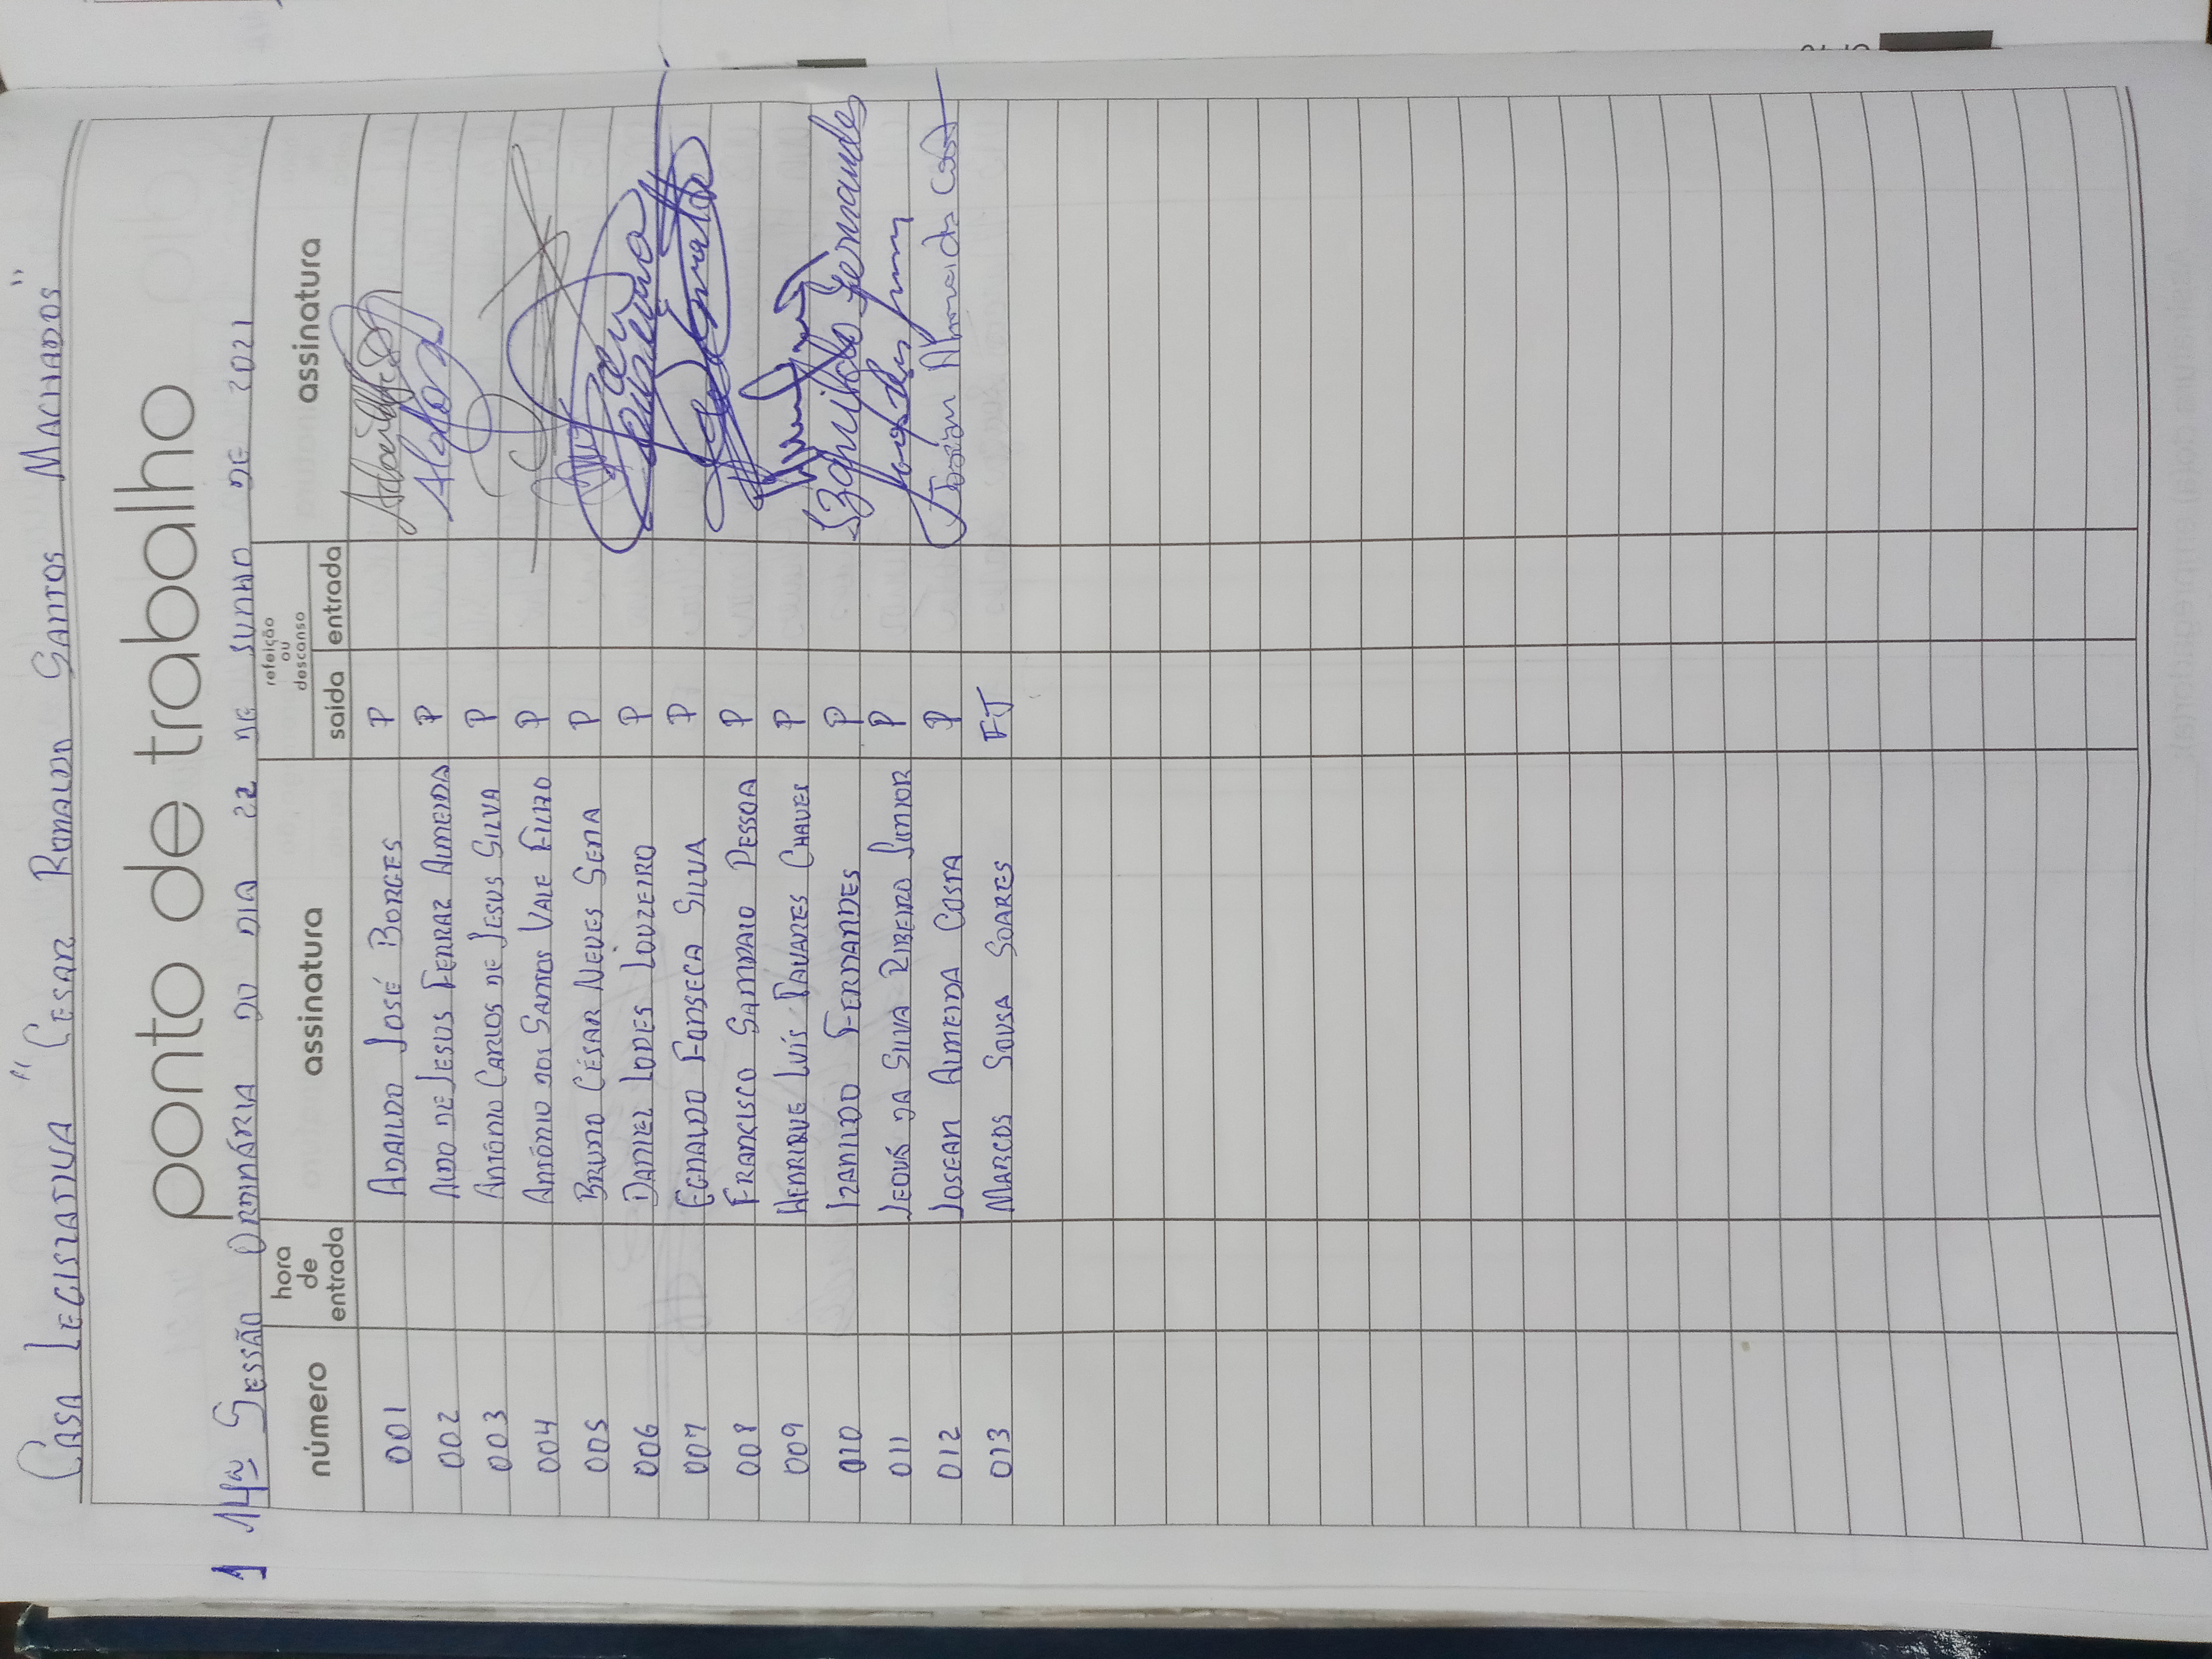 Casa Legislativa "Cesar Ronaldo Santos Machados"
ponto de trabalho
1 14ª Sessão Ordinária do dia 22 de Junho de 2021
número hora de entrada assinatura refeição ou descanso saída entrada assinatura
001 Adaildo José Borges P
002 Aldo de Jesus Ferraz Almeida P
003 Antônio Carlos de Jesus Silva P
004 Antônio dos Santos Vale Filho P
005 Bruno César Neves Sena P
006 Daniel Lopes Louzeiro P
007 Egnaldo Fonseca Silva P
008 Francisco Sampaio Pessoa P
009 Henrique Luís Tavares Chaves P
010 Izanildo Fernandes P Izanildo Fernandes
011 Jeová da Silva Ribeiro Junior P
012 Josean Almeida Costa P Josean Almeida Costa
013 Marcos Sousa Soares FJ